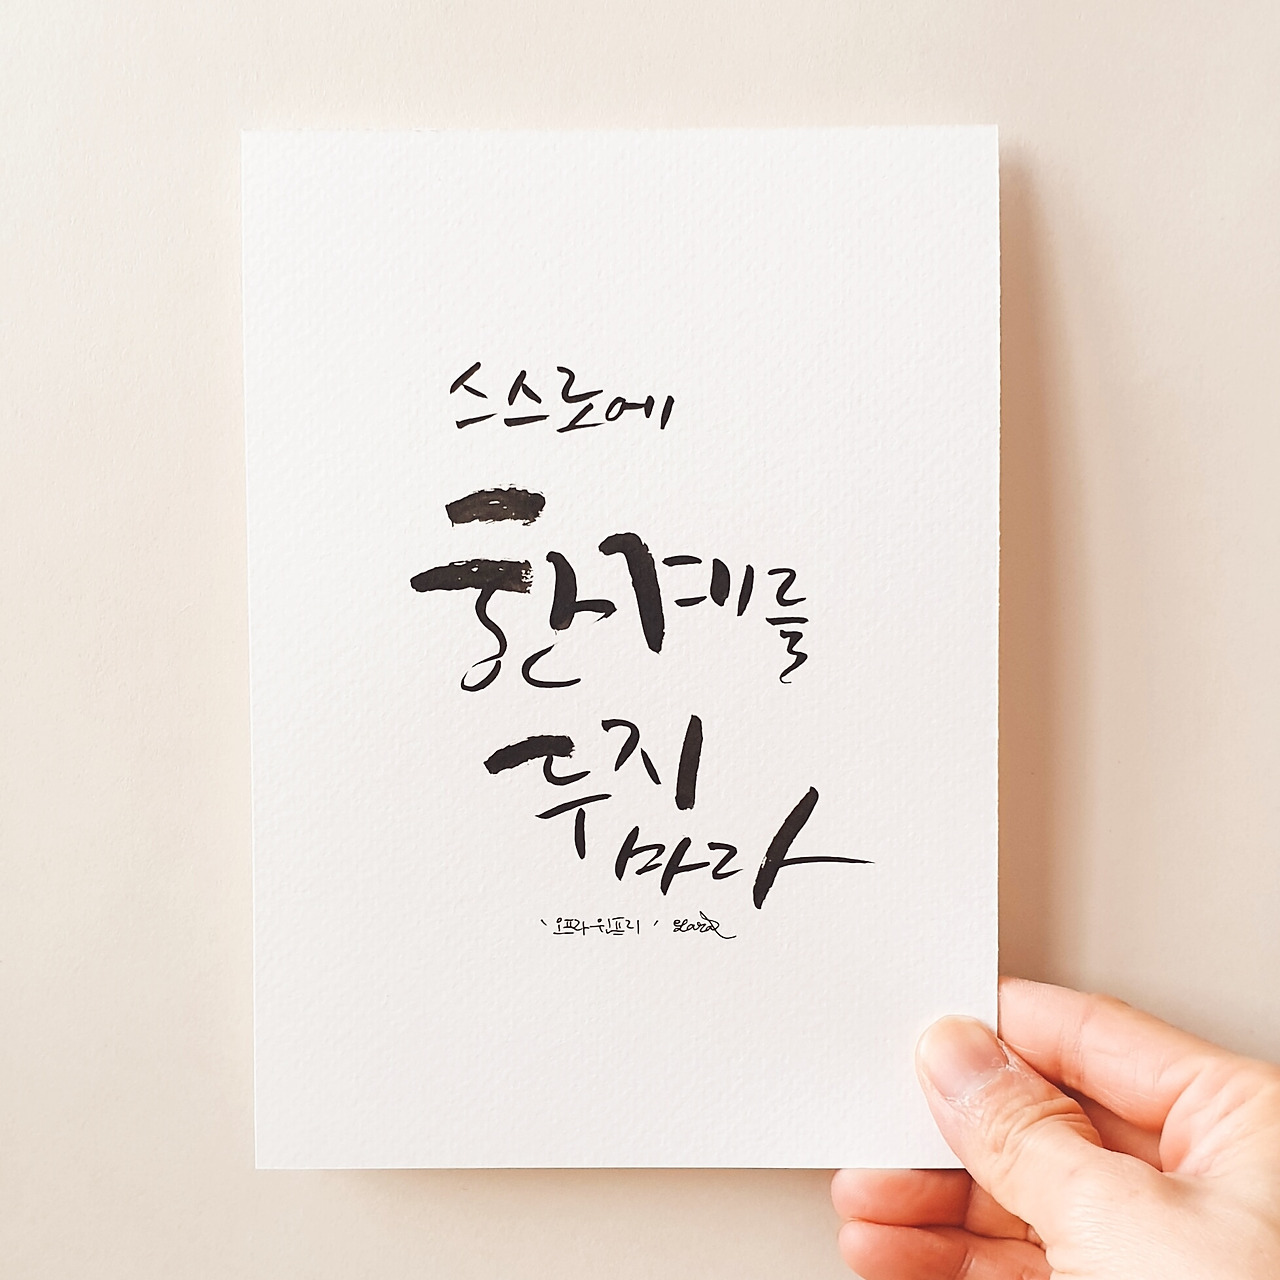 스스로에
한계를
두지
마라
‘오프라 윈프리’